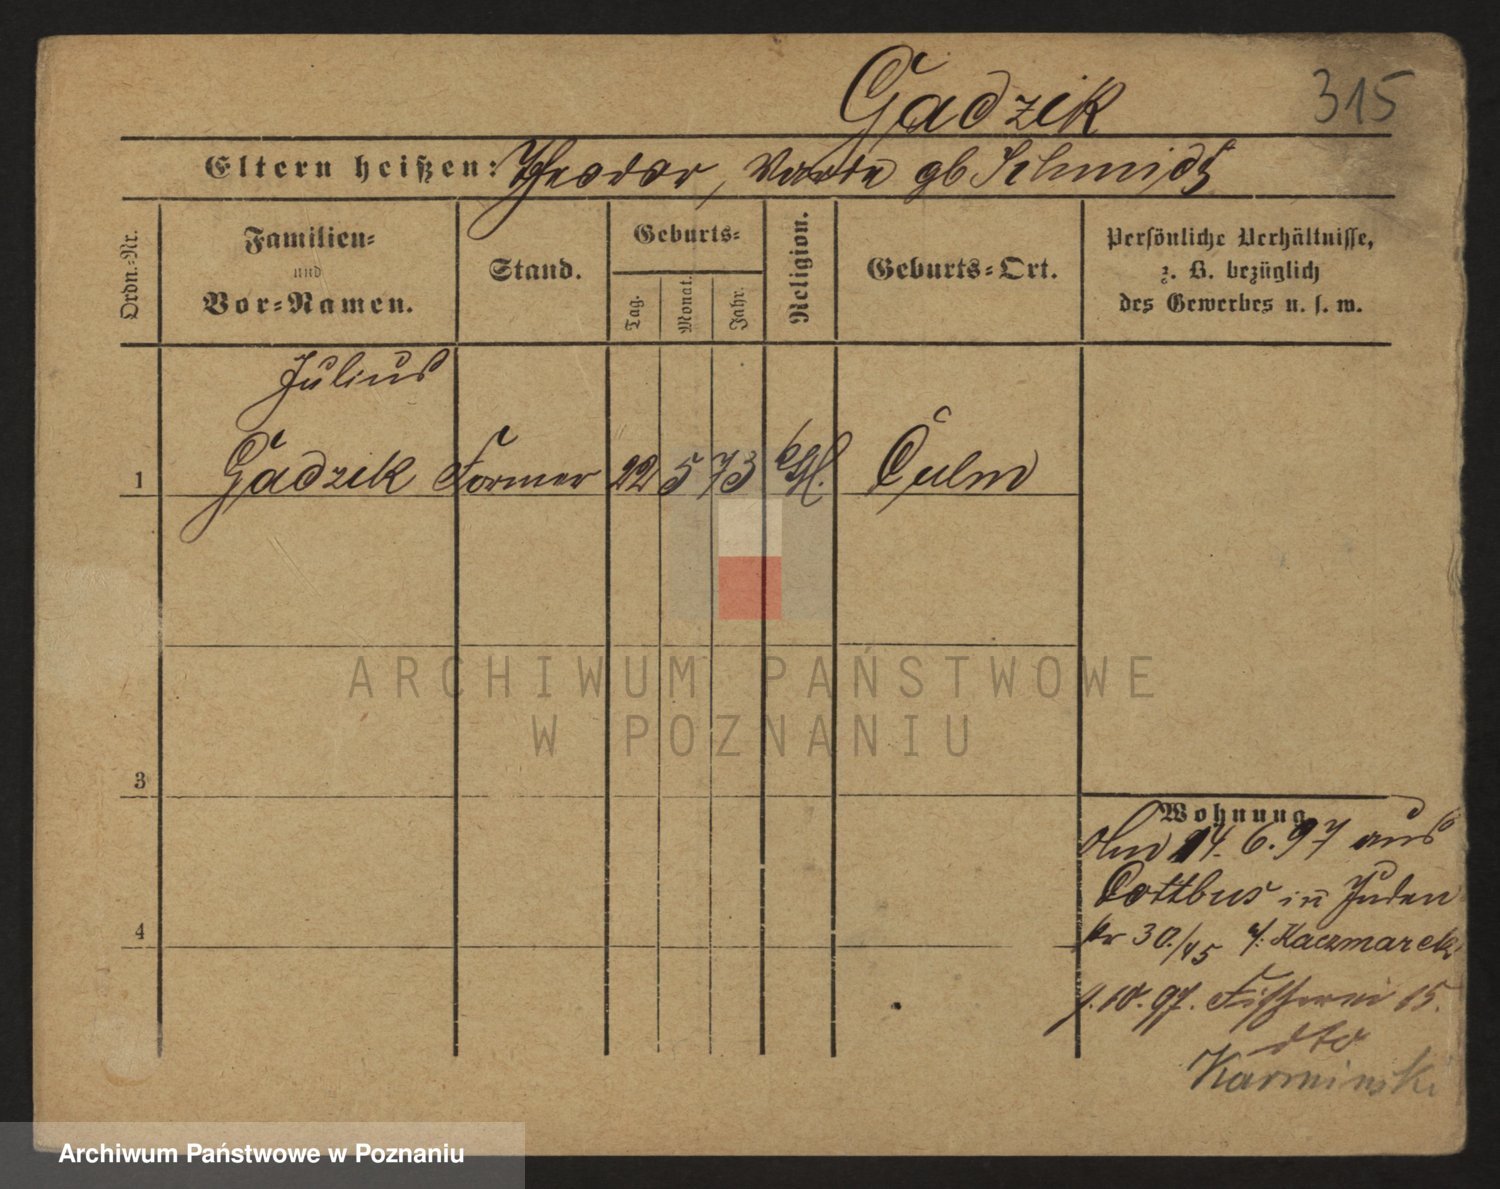 Gadzik 315
Eltern heißen: Theodor, gb Schmidt
Ordn.-Nr.
Familien-
und
Vor-Namen.
Stand.
Geburts-
Tag.
Monat.
Jahr.
Religion.
Geburts-Ort.
Persönliche Verhältnisse,
z. B. bezüglich
des Gewerbes u. s. w.
Julius
1 Gadzik Former 22 5 73 Culm
ARCHIWUM PAŃSTWOWE
W POZNANIU
3
Wohnung
14. 6. 97 aus
Cottbus in Juden
str 30./45 Kaczmarek
4
1. 10. 97. Fischerei 15.
dto
Karminski
Archiwum Państwowe w Poznaniu